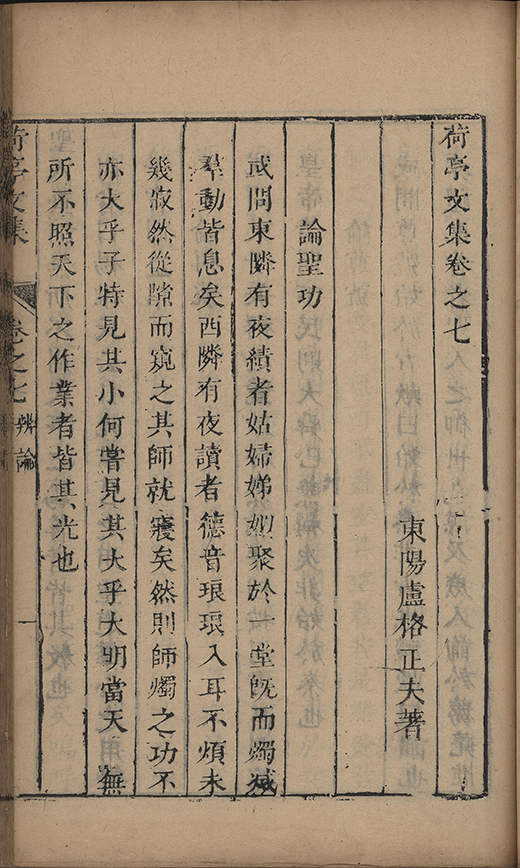 荷亭文集卷之七
東陽盧格正夫著
論聖功
或問東隣有夜績者姑婦娣姒聚於一堂既而燭滅
羣動皆息矣西隣有夜讀者德音琅琅入耳不煩未
幾寂然從隙而窺之其師就寢矣然則師燭之功不
亦大乎子特見其小何嘗見其大乎大明當天無
所不照天下之作業者皆其光也
荷亭文集 卷之七 辨論 一